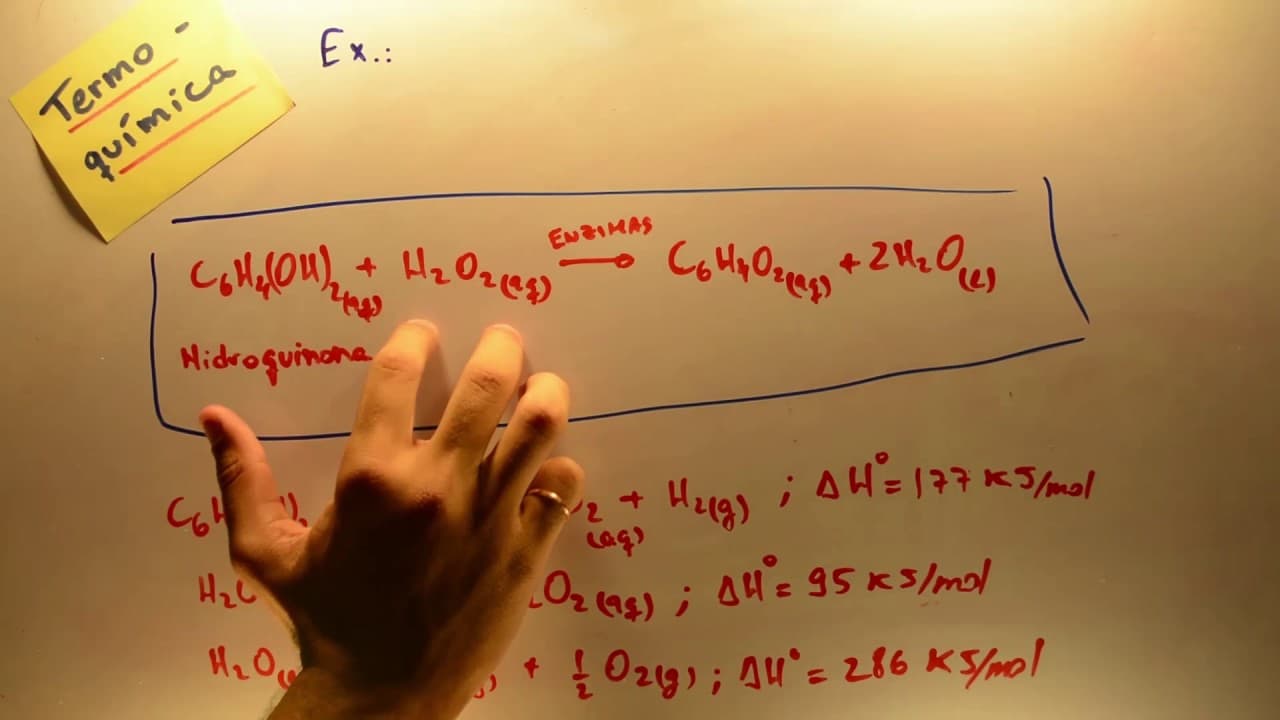 Termo-
química
Ex.:
ENZIMAS
C₆H₄(OH)₂(aq) + H₂O₂(aq) → C₆H₄O₂(aq) + 2H₂O(l)
Hidroquinona
C₆H O₂(aq) + H₂(g) ; ΔH° = 177 KJ/mol
H₂O O₂(aq) ; ΔH° = 95 KJ/mol
H₂O + ½ O₂(g) ; ΔH° = 286 KJ/mol